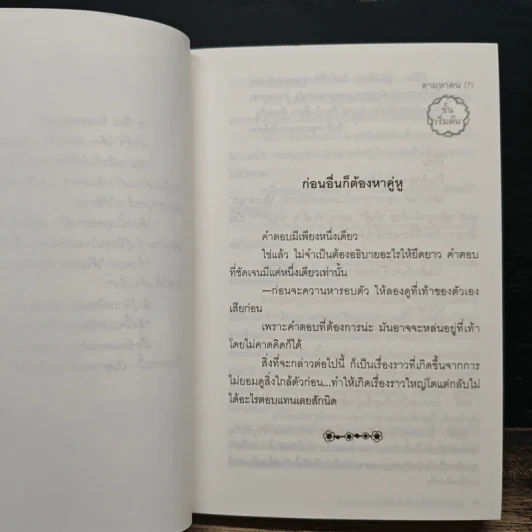 ตามหาคน (?)
ขั้น
เริ่มต้น
ก่อนอื่นก็ต้องหาคู่หู
คำตอบมีเพียงหนึ่งเดียว
ใช่แล้ว ไม่จำเป็นต้องอธิบายอะไรให้ยืดยาว คำตอบ
ที่ชัดเจนมีแค่หนึ่งเดียวเท่านั้น
—ก่อนจะควานหารอบตัว ให้ลองดูที่เท้าของตัวเอง
เสียก่อน
เพราะคำตอบที่ต้องการน่ะ มันอาจจะหล่นอยู่ที่เท้า
โดยไม่คาดคิดก็ได้
สิ่งที่จะกล่าวต่อไปนี้ ก็เป็นเรื่องราวที่เกิดขึ้นจากการ
ไม่ยอมดูสิ่งใกล้ตัวก่อน...ทำให้เกิดเรื่องราวใหญ่โตแต่กลับไม่
ได้อะไรตอบแทนเลยสักนิด